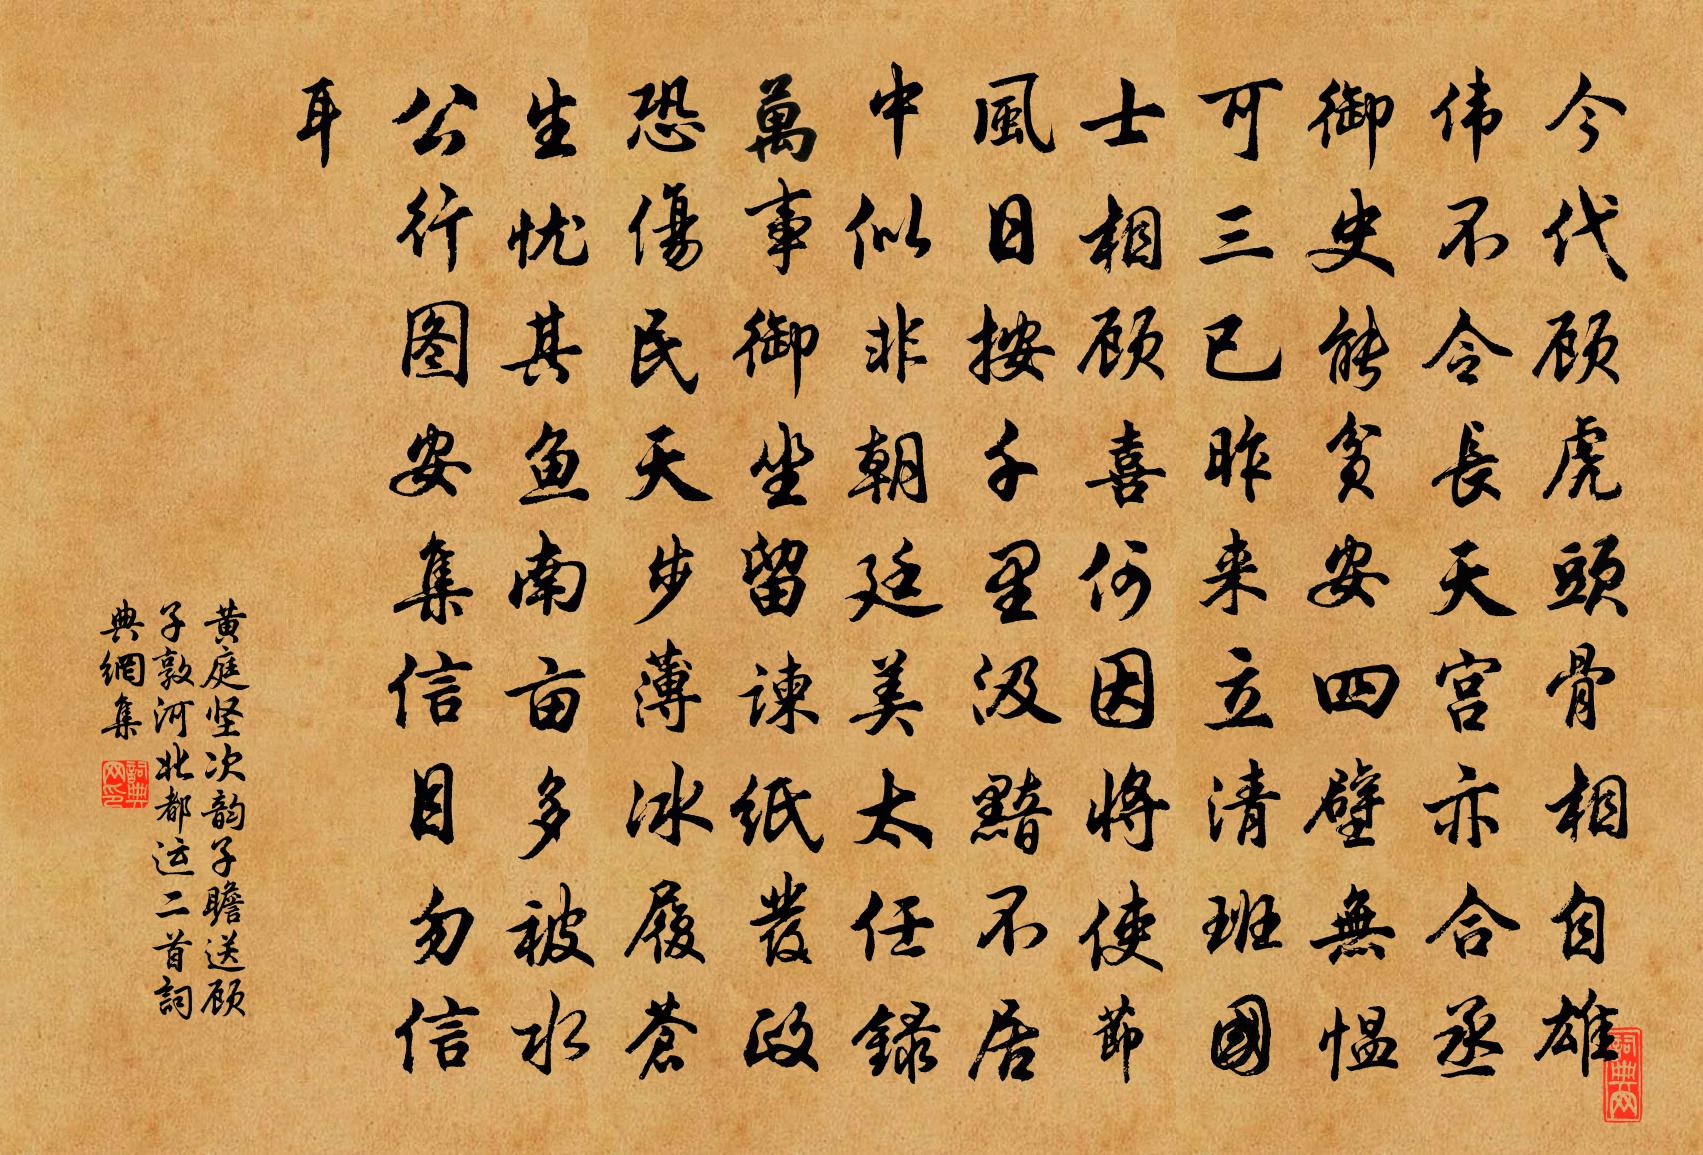 今代顾虎頭骨相自雄
伟不令長天宫亦合丞
御史能贫安四壁無愠
可三已昨来立清班國
士相顾喜何因將使節
風日按千里汲黯不居
中似非朝廷美太任録
萬事御坐留谏紙發政
恐傷民天步薄冰履蒼
生忧其鱼南亩多被水
公行图安集信目勿信
耳
黄庭坚次韵子瞻送顾
子敦河北都运二首詞
典網集
詞典网印
詞典网